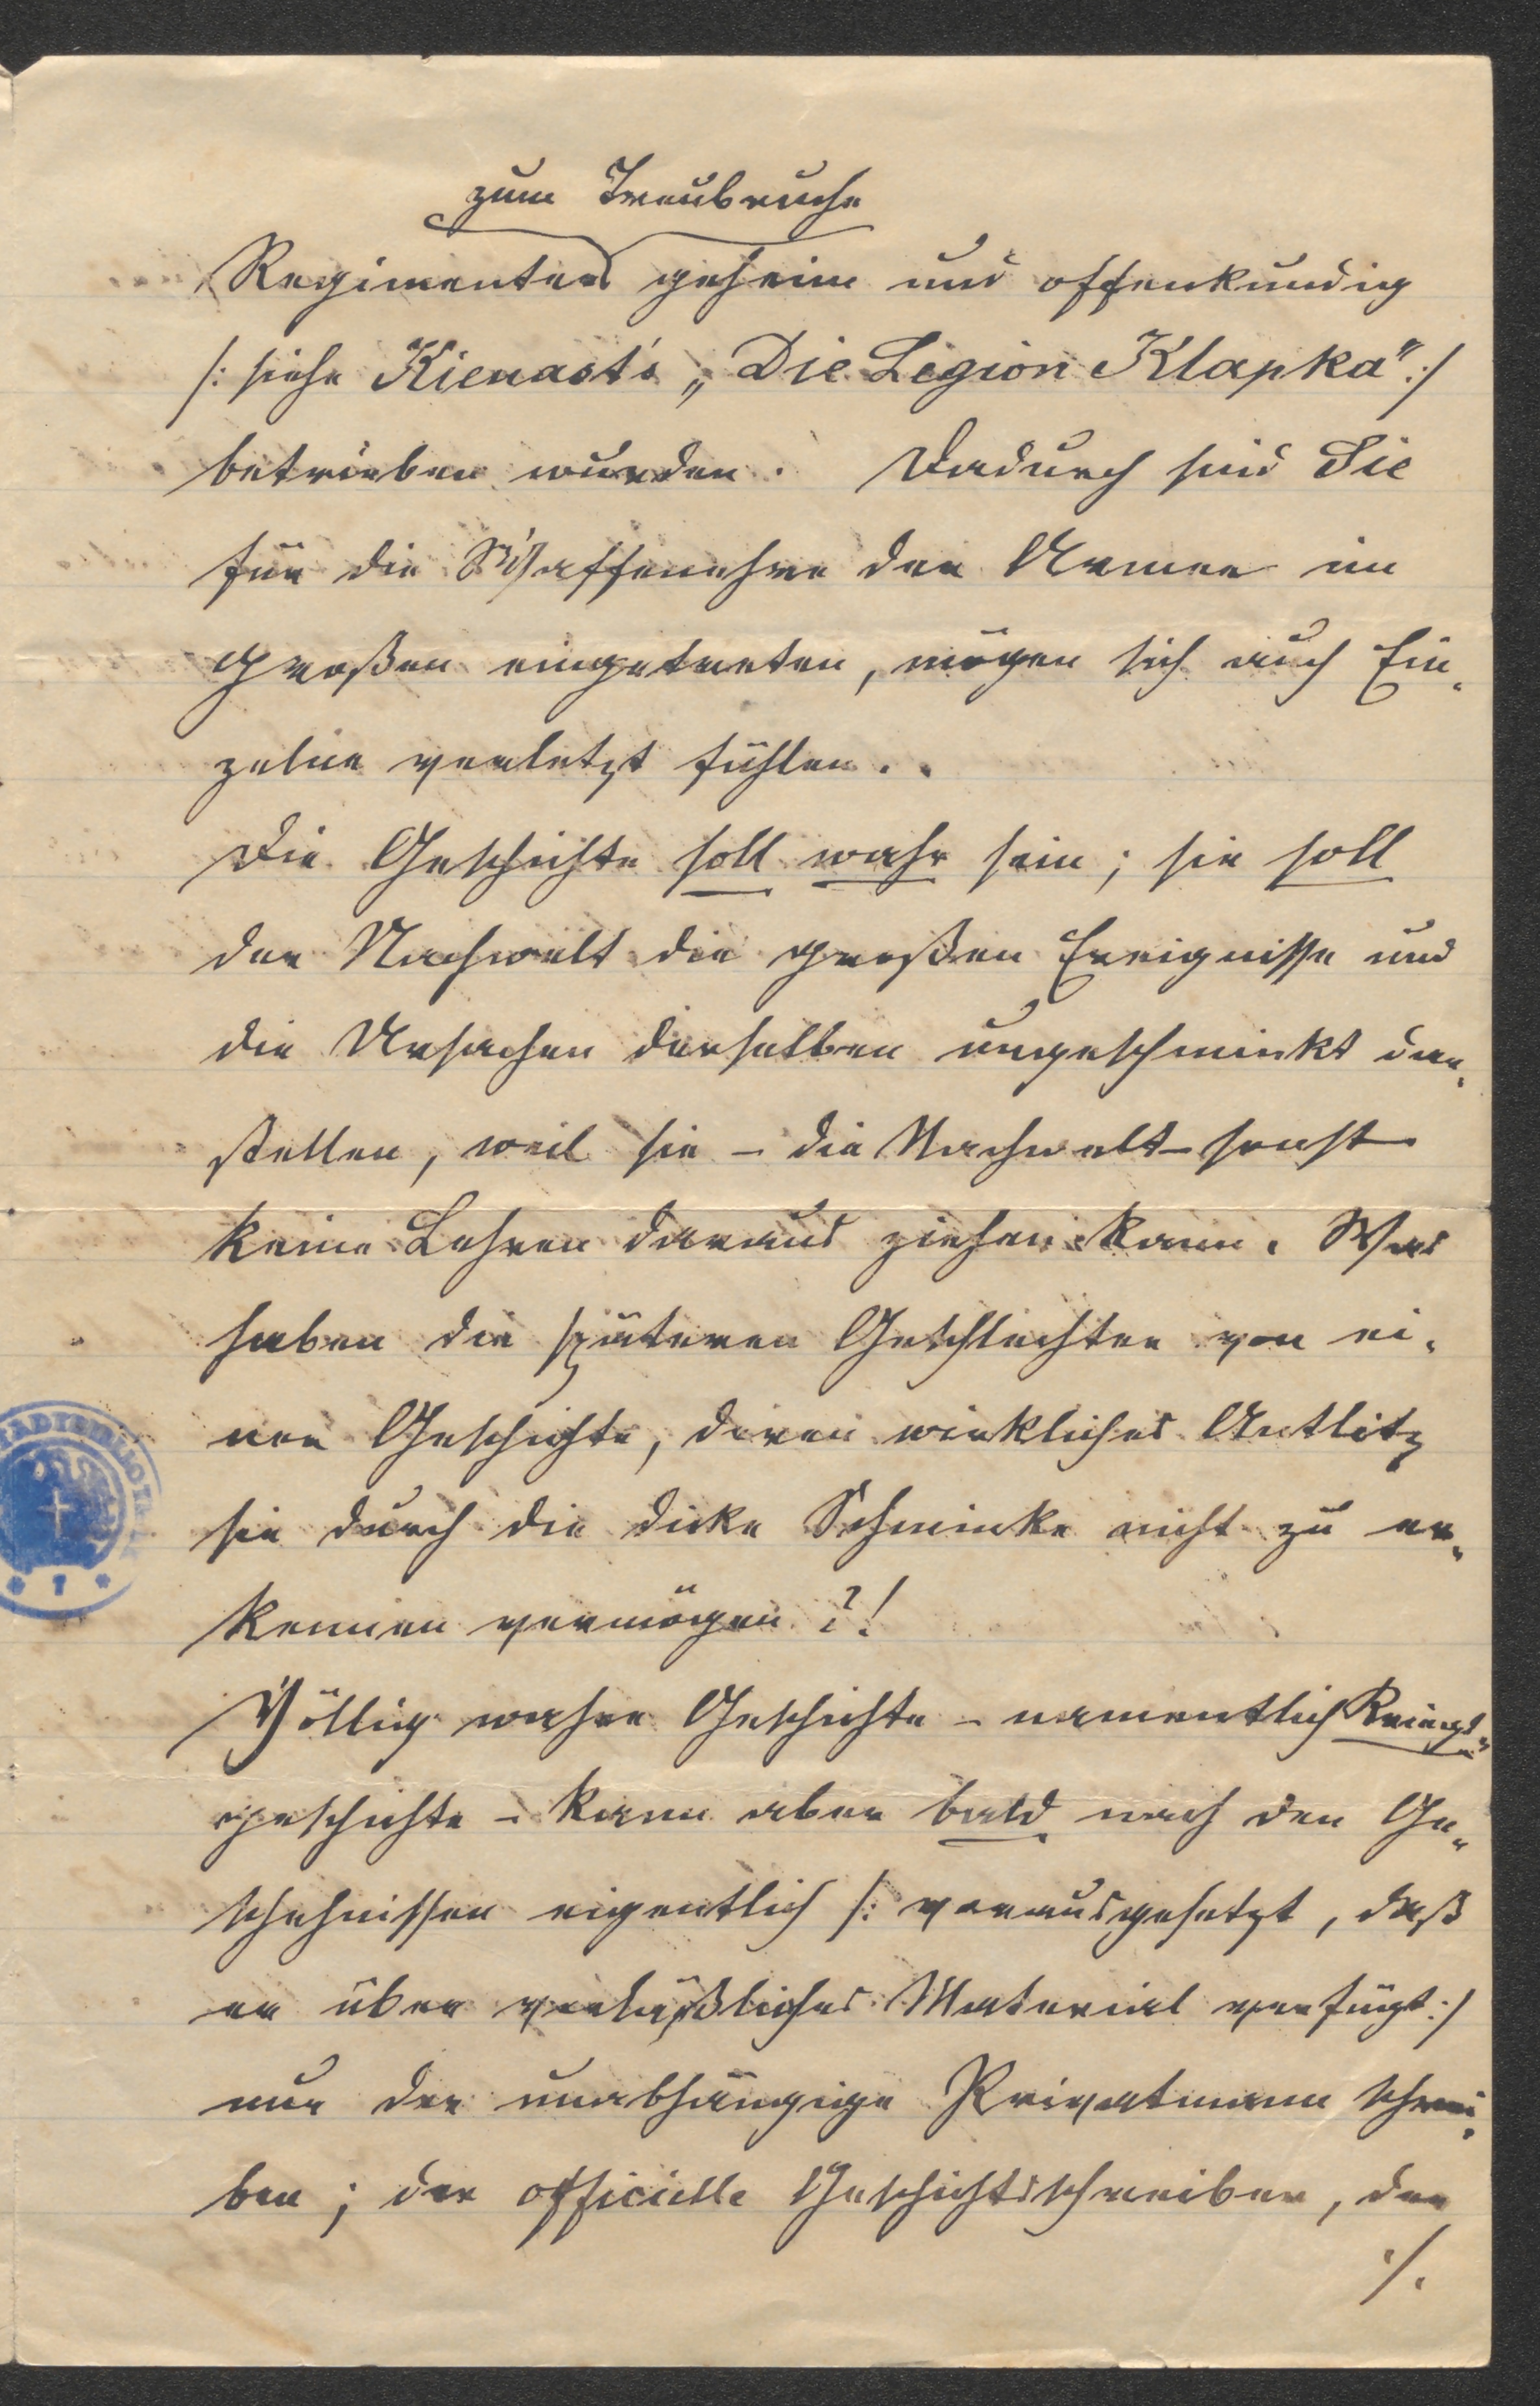 zum Treubruche
Regimenter geheim und offenkundig
/: siehe Kienast's „Die Legion Klapka" :/
betrieben wurden. Dadurch sind Sie
für die Waffenehre der Armee im
großen eingetreten, mögen sich auch Ein-
zelne verletzt fühlen.
Die Geschichte soll wahr sein; sie soll
der Nachwelt die großen Ereignisse und
die Ursachen derselben ungeschminkt dar-
stellen, weil sie – die Nachwelt – sonst
keine Lehren daraus ziehen kann. Was
haben die späteren Geschlechter von ei-
ner Geschichte, deren wirkliches Antlitz
sie durch die dicke Schminke nicht zu er-
kennen vermögen?!
Völlig wahre Geschichte – namentlich Kriegs-
geschichte – kann aber bald nach den Ge-
schehnissen eigentlich /: vorausgesetzt, daß
er über verläßliches Material verfügt :/
nur der unabhängige Privatmann schrei-
ben; der officielle Geschichtsschreiber, der
./.
* 7 *